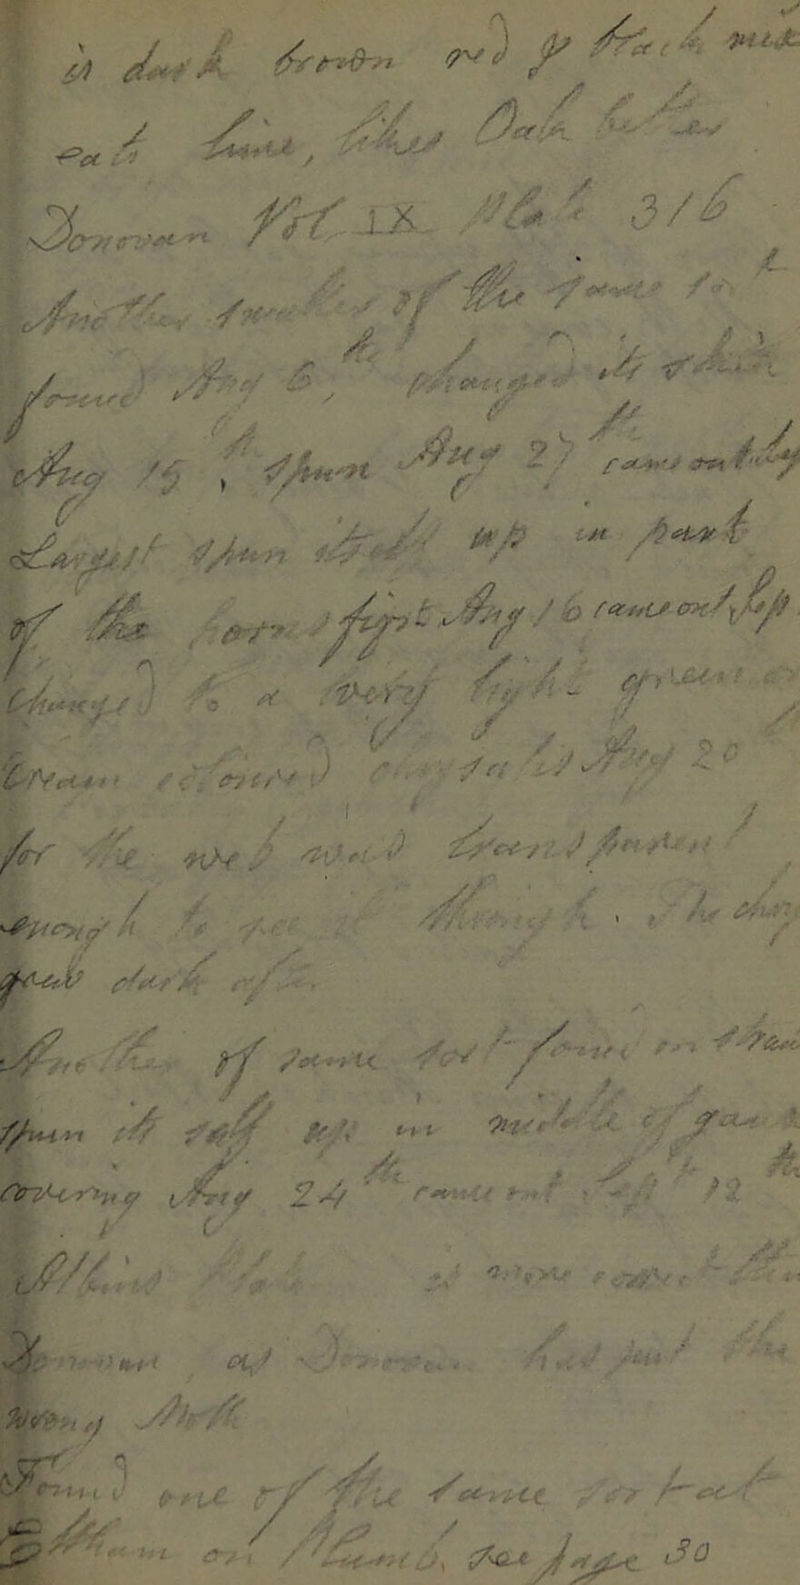 is dark brown red & black mix
eats lime, likes Oak better
Donovan Vol IX Plate 316
Another smaller of the same sort
found Aug 6th, changed its skin
Aug 15th, spun Aug 27th came out
Largest spun itself up in part
of the horns first Aug 16 came out Sep
changed to a very light green or
cream coloured chrysalis Aug 20th
for the web was transparent
enough to see it through. The chry
grew dark after
Another of same sort found on
spun its self up in middle of
covering Aug 24th came out Sept 12th
Albins Plate is more correct
Donovan, as Donovan has put the
wrong Moth
Found one of the same sort at
Eltham on Plumb. see page 30